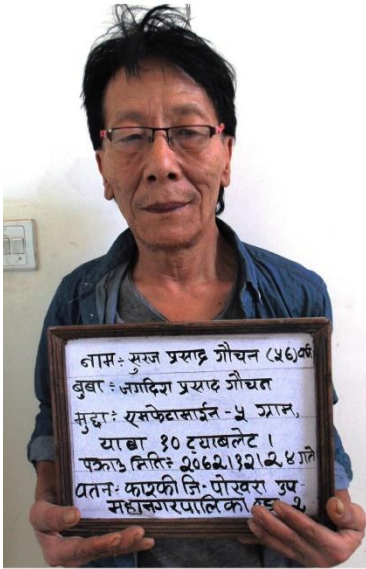 नाम: सुरज प्रसाद गौचन (५६) वर्ष
बुबा: जगदिश प्रसाद गौचन
मुद्दा: एमफेटामाईन - ५ ग्राम,
याबा १० ट्याबलेट ।
पक्राउ मिति: २०७२।१२।२४ गते
वतन: काश्की जि- पोखरा उप-
महानगरपालिका वडा २